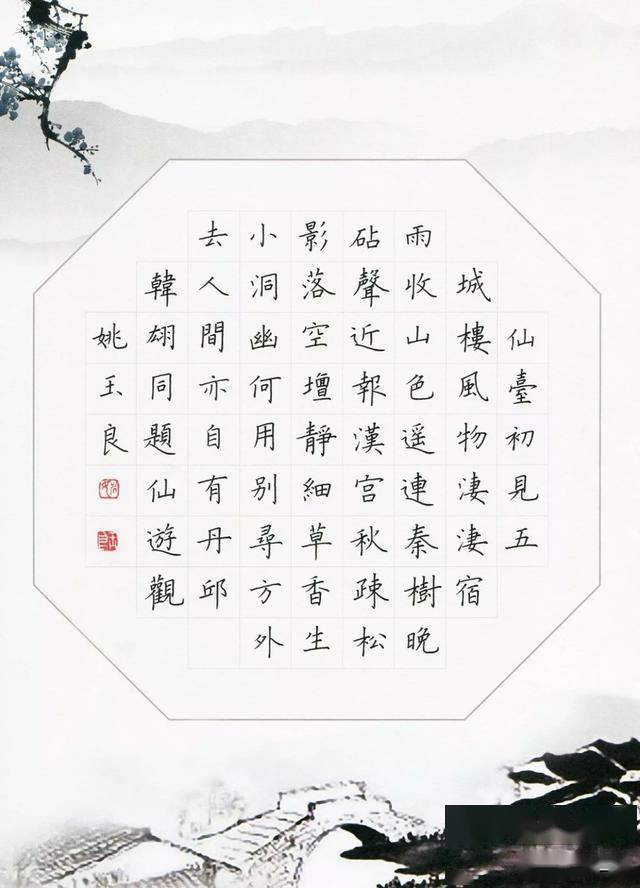 仙臺初見五
城樓風物淒淒宿
雨收山色遥連秦樹晚
砧聲近報漢宮秋疎松
影落空壇靜細草香生
小洞幽何用别尋方外
去人間亦自有丹邱
韓翃同題仙遊觀
姚玉良